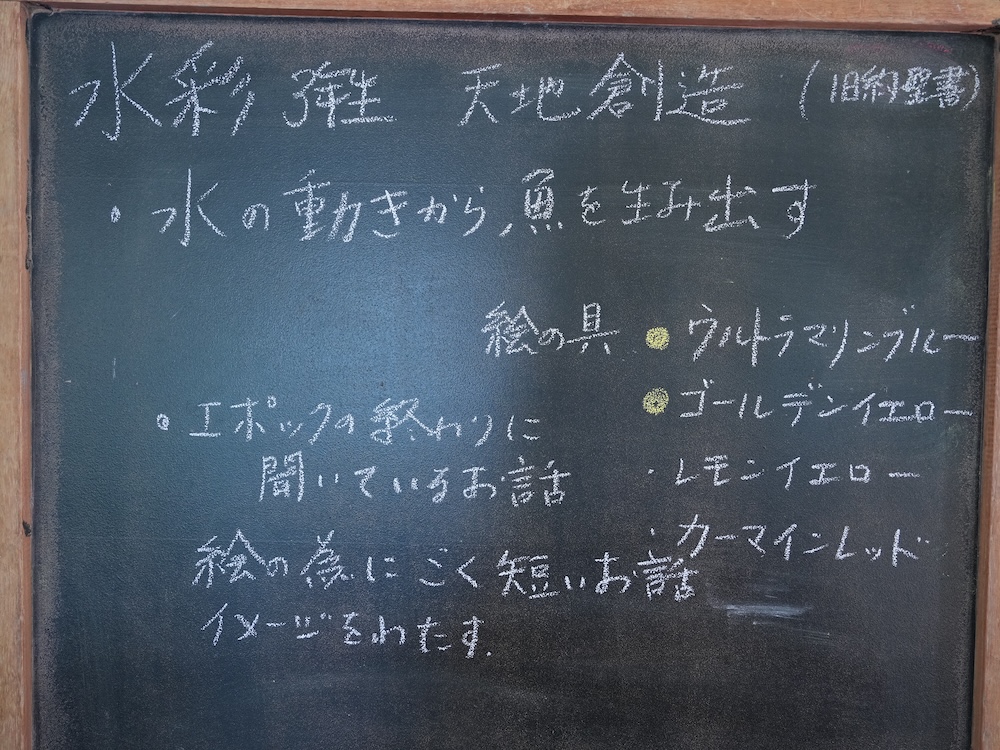 水彩 3年生 天地創造 (旧約聖書)
・水の動きから,魚を生み出す
絵の具 ●ウルトラマリンブルー
●ゴールデンイエロー
・レモンイエロー
・カーマインレッド
。エポックの終わりに
聞いているお話
絵の為にごく短いお話
イメージをわたす.